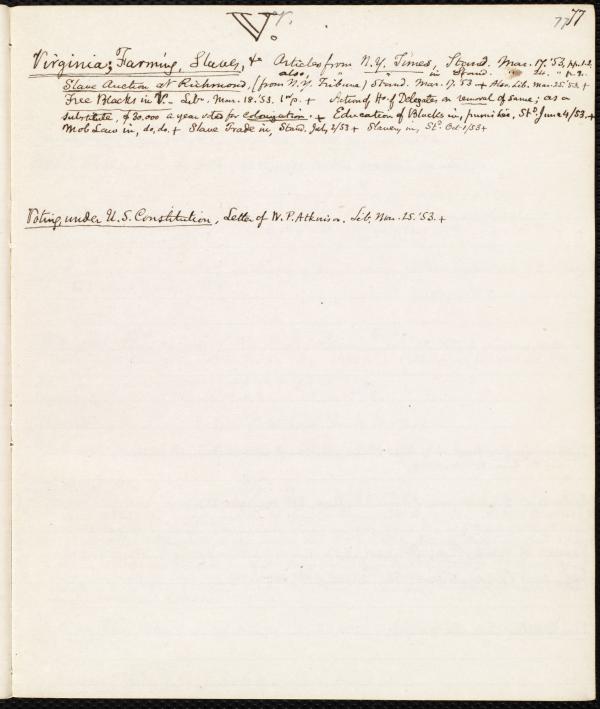 V. 77 77
Virginia; Farming, Slaves, &c Articles from N.Y. Times, Stand. Mar. 17.'53, pp. 1.2.
also, " " in Stand. " 24. " p. 2.
Slave Auction at Richmond, (from N.Y. Tribune) Stand. Mar. 17. '53 + Also, Lib. Mar. 25 '53. +
Free Blacks in V. – Libr. Mar. 18. '53. 1st p. + Action of Ho. of Delegates on removal of same; as a
substitute, $30.000 a year votes for colonization. + Education of Blacks in, punishes, Std. June 4/53. +
Mob Law in, do, do. + Slave Trade in, Stand. July 2/53 + Slavery in, Std. Oct 1/53 +
Voting, under U.S. Constitution, Letter of W. P. Atkinson. Lib, Mar. 25. '53. +